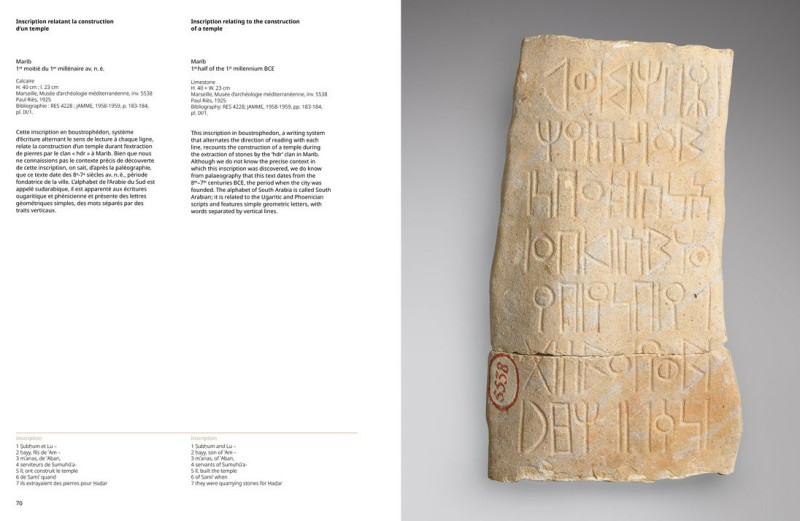 Inscription relatant la construction
d'un temple
Marib
1re moitié du 1er millénaire av. n. è.
Calcaire
H. 40 cm ; l. 23 cm
Marseille, Musée d'archéologie méditerranéenne, inv. 5538
Paul Riès, 1925
Bibliographie : RES 4228 ; JAMME, 1958-1959, p. 183-184,
pl. IX/1.
Cette inscription en boustrophédon, système
d'écriture alternant le sens de lecture à chaque ligne,
relate la construction d'un temple durant l'extraction
de pierres par le clan « hdr » à Marib. Bien que nous
ne connaissions pas le contexte précis de découverte
de cette inscription, on sait, d'après la paléographie,
que ce texte date des 8e-7e siècles av. n. è., période
fondatrice de la ville. L'alphabet de l'Arabie du Sud est
appelé sudarabique, il est apparenté aux écritures
ougaritique et phénicienne et présente des lettres
géométriques simples, des mots séparés par des
traits verticaux.
Inscription
1 Ṣubḥum et Lu –
2 ḥayy, fils de ʿAm –
3 mʾanas, de ʾAban,
4 serviteurs de Sumuhûʿa-
5 lî, ont construit le temple
6 de Samiʿ quand
7 ils extrayaient des pierres pour Haḍar
70
Inscription relating to the construction
of a temple
Marib
1st half of the 1st millennium BCE
Limestone
H. 40 × W. 23 cm
Marseille, Musée d'archéologie méditerranéenne, inv. 5538
Paul Riès, 1925
Bibliography: RES 4228; JAMME, 1958-1959, pp. 183-184,
pl. IX/1.
This inscription in boustrophedon, a writing system
that alternates the direction of reading with each
line, recounts the construction of a temple during
the extraction of stones by the 'hdr' clan in Marib.
Although we do not know the precise context in
which this inscription was discovered, we do know
from palaeography that this text dates from the
8th–7th centuries BCE, the period when the city was
founded. The alphabet of South Arabia is called South
Arabian; it is related to the Ugaritic and Phoenician
scripts and features simple geometric letters, with
words separated by vertical lines.
Inscription
1 Ṣubḥum and Lu –
2 ḥayy, son of ʿAm –
3 mʾanas, of ʾAban,
4 servants of Sumuhûʿa-
5 lî, built the temple
6 of Samiʿ when
7 they were quarrying stones for Haḍar
5538